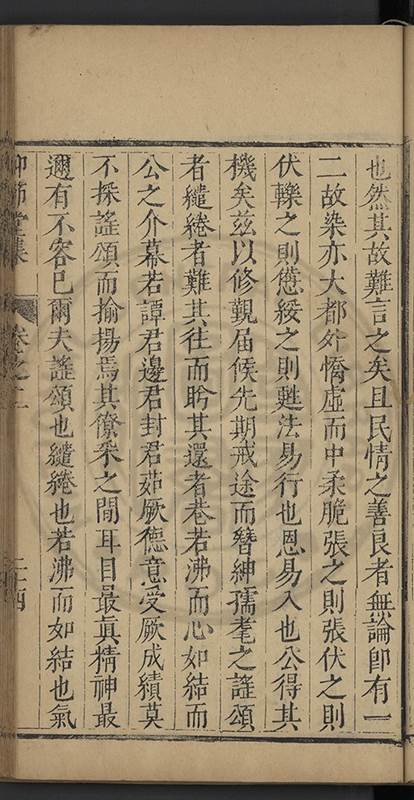 也然其故難言之矣且民情之善良者無論卽有一
二故染亦大都外憍虛而中柔脆張之則張伏之則
伏轢之則憊綏之則甦法易行也恩易入也公得其
機矣茲以修覲届候先期戒途而簪紳孺耄之謠頌
者繾綣者難其往而盻其還者巷若沸而心如結而
公之介幕若譚君邊君封君茹厥德意受厥成績莫
不採謠頌而揄揚焉其僚寀之間耳目最真精神最
邇有不容已爾夫謠頌也繾綣也若沸而如結也氣
仰節堂集 卷之二 二十四